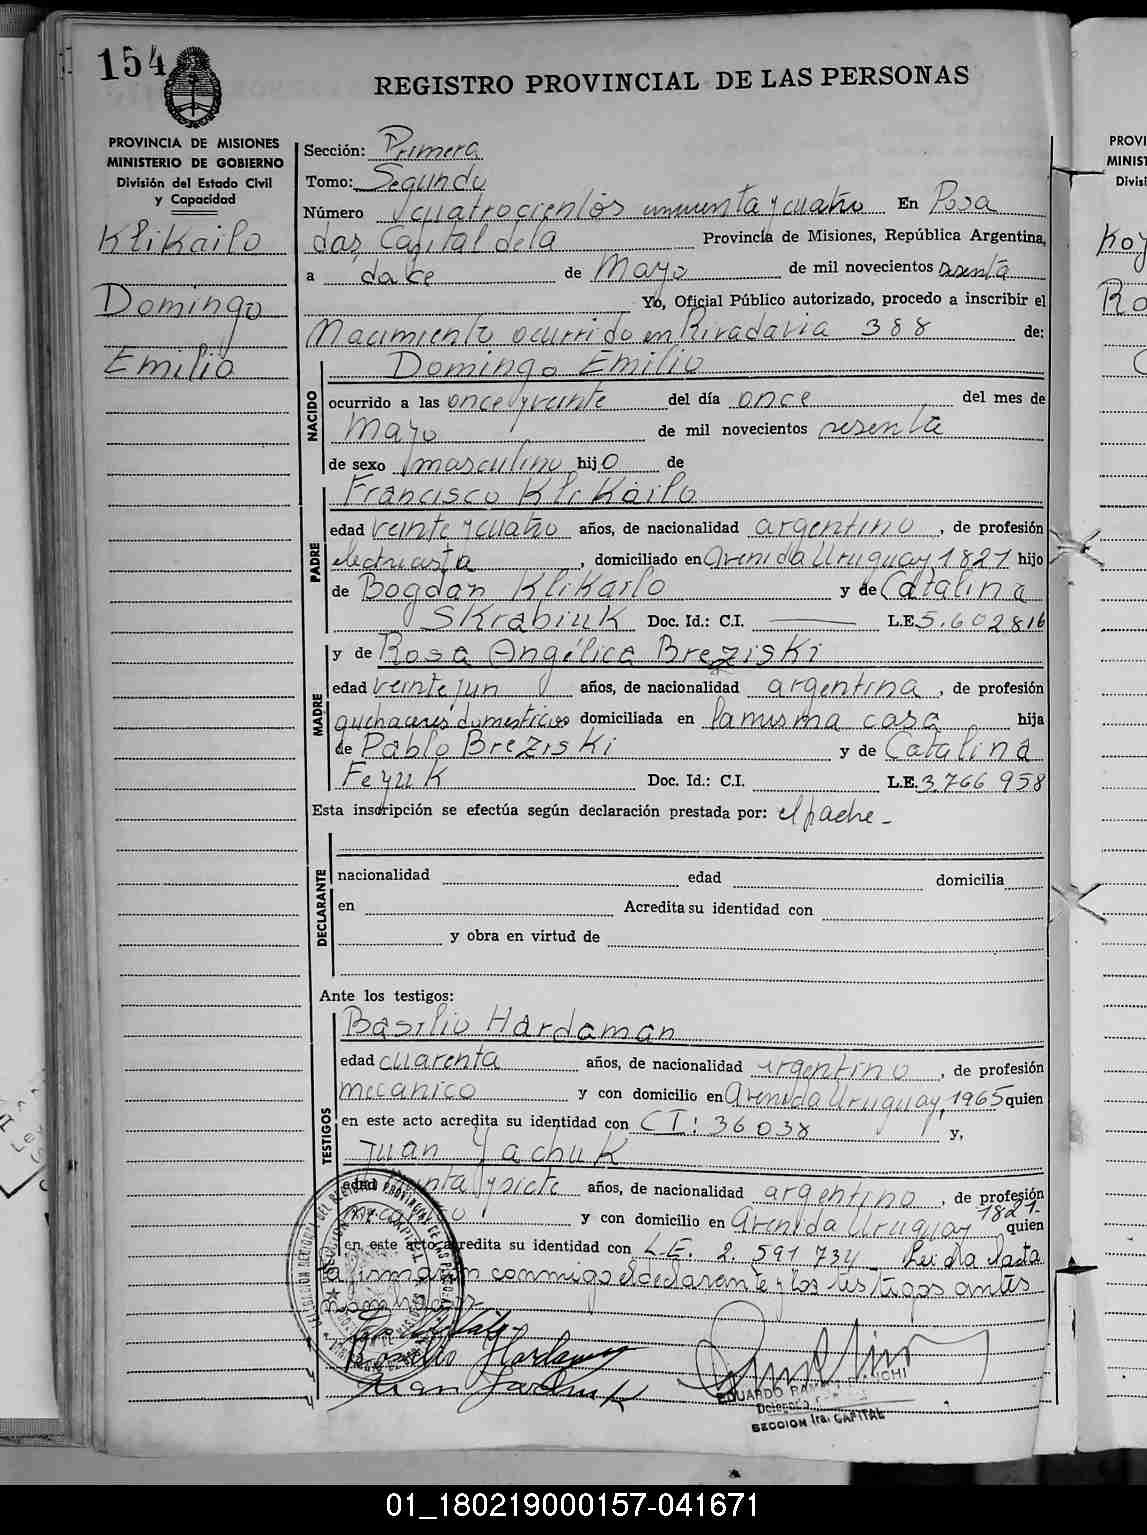 154
REGISTRO PROVINCIAL DE LAS PERSONAS
PROVINCIA DE MISIONES
MINISTERIO DE GOBIERNO
División del Estado Civil
y Capacidad
Klikailo
Domingo
Emilio
Sección: Primera
Tomo: Segundo
Número cuatrocientos cincuenta y cuatro En Posa
das, Capital de la Provincia de Misiones, República Argentina,
a doce de Mayo de mil novecientos sesenta
Yo, Oficial Público autorizado, procedo a inscribir el
Nacimiento ocurrido en Rivadavia 388 de:
NACIDO
Domingo Emilio
ocurrido a las once y veinte del día once del mes de
Mayo de mil novecientos sesenta
de sexo masculino hijo de
PADRE
Francisco Klikailo
edad veinte y cuatro años, de nacionalidad argentino, de profesión
electricista, domiciliado en Avenida Uruguay 1821 hijo
de Bogdan Klikailo y de Catalina
Skrabiuk Doc. Id.: C.I. —— L.E. 5.602816
MADRE
y de Rosa Angélica Breziski
edad veinte y un años, de nacionalidad argentina, de profesión
quehaceres domesticos domiciliada en la misma casa hija
de Pablo Breziski y de Catalina
Feyuk Doc. Id.: C.I. L.E. 3.766 958
Esta inscripción se efectúa según declaración prestada por: el padre -
DECLARANTE
nacionalidad edad domicilia
en Acredita su identidad con
y obra en virtud de
Ante los testigos:
TESTIGOS
Basilio Hardaman
edad cuarenta años, de nacionalidad argentino, de profesión
mecanico y con domicilio en Avenida Uruguay, 1965 quien
en este acto acredita su identidad con CI: 36038 y,
Juan Yachuk
edad y siete años, de nacionalidad argentino, de profesión
mecanico y con domicilio en Avenida Uruguay 1821- quien
en este acto acredita su identidad con L.E. 2.591 734 Leida el acta
la firmaron conmigo el declarante y los testigos antes
Basilio Hardaman
Juan Yachuk
EDUARDO
Delegado
SECCION 1ra. CAPITAL
PROVI
MINIST
Divisi
Koy
Ro
01_180219000157-041671